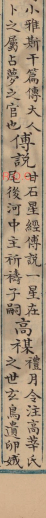 小雅斯干篇傳大人
卜之屬占夢之官也
傅說
甘石星經傅說一星在
尾後河中主祈禱子嗣
高禖
禮月令注高辛氏
之世玄鳥遺卵娀